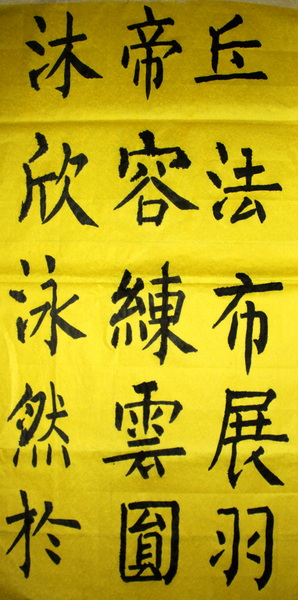 丘法布展羽
帝容練雲圓
沐欣泳然於